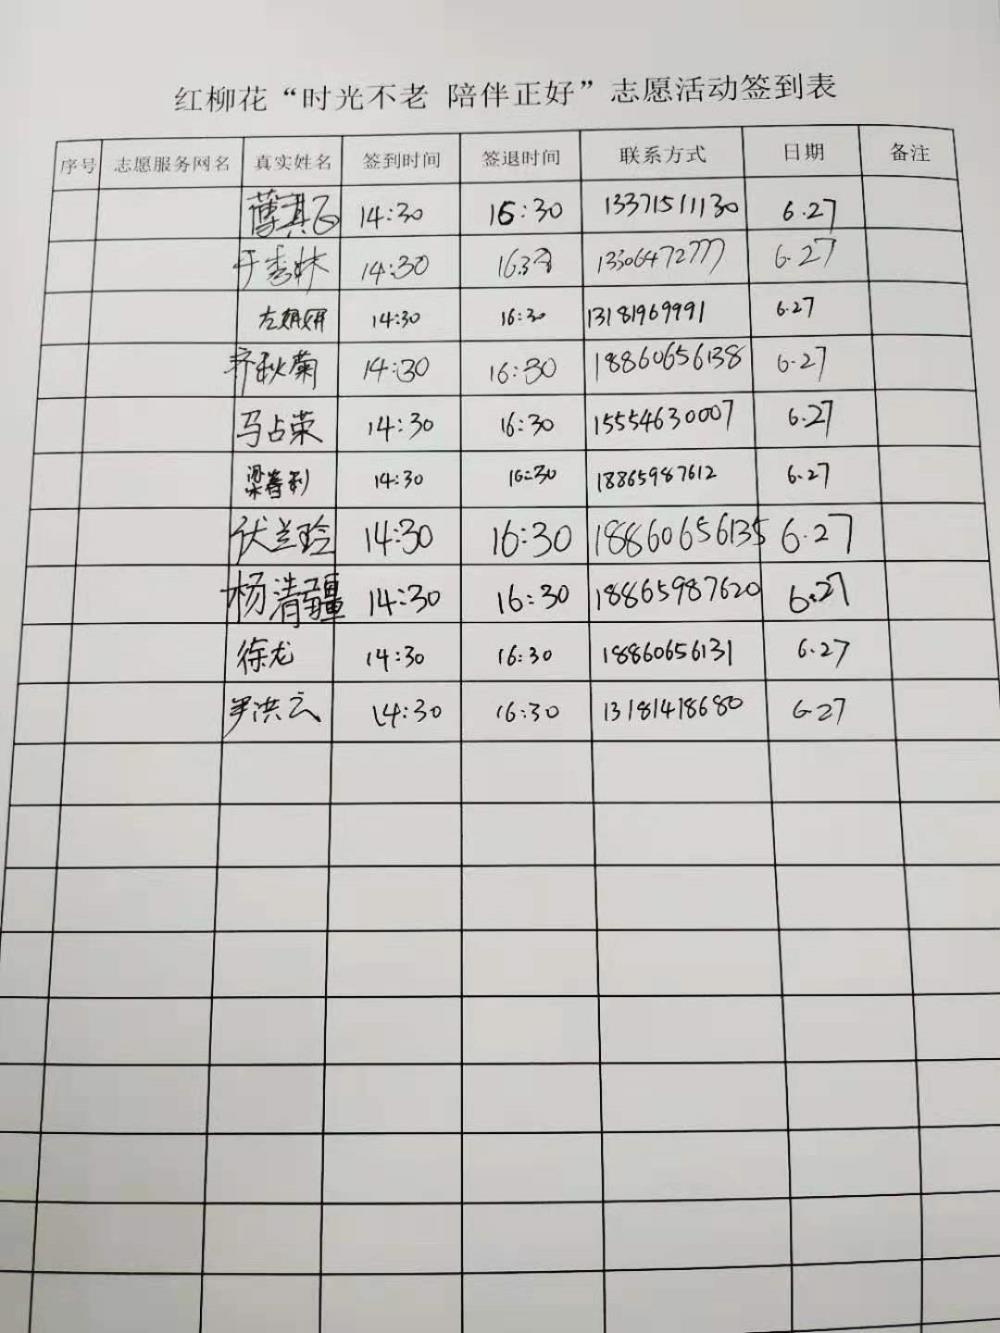 红柳花“时光不老 陪伴正好”志愿活动签到表
序号 志愿服务网名 真实姓名 签到时间 签退时间 联系方式 日期 备注
薛其飞 14:30 16:30 13371511130 6.27
于秀妹 14:30 16:30 13306472777 6.27
左妍妍 14:30 16:30 13181969991 6.27
齐秋菊 14:30 16:30 18860656138 6.27
马占荣 14:30 16:30 15554630007 6.27
梁春利 14:30 16:30 18865987612 6.27
伏兰玲 14:30 16:30 18860656135 6.27
杨清疆 14:30 16:30 18865987620 6.27
徐龙 14:30 16:30 18860656131 6.27
洪云 14:30 16:30 13181418680 6.27